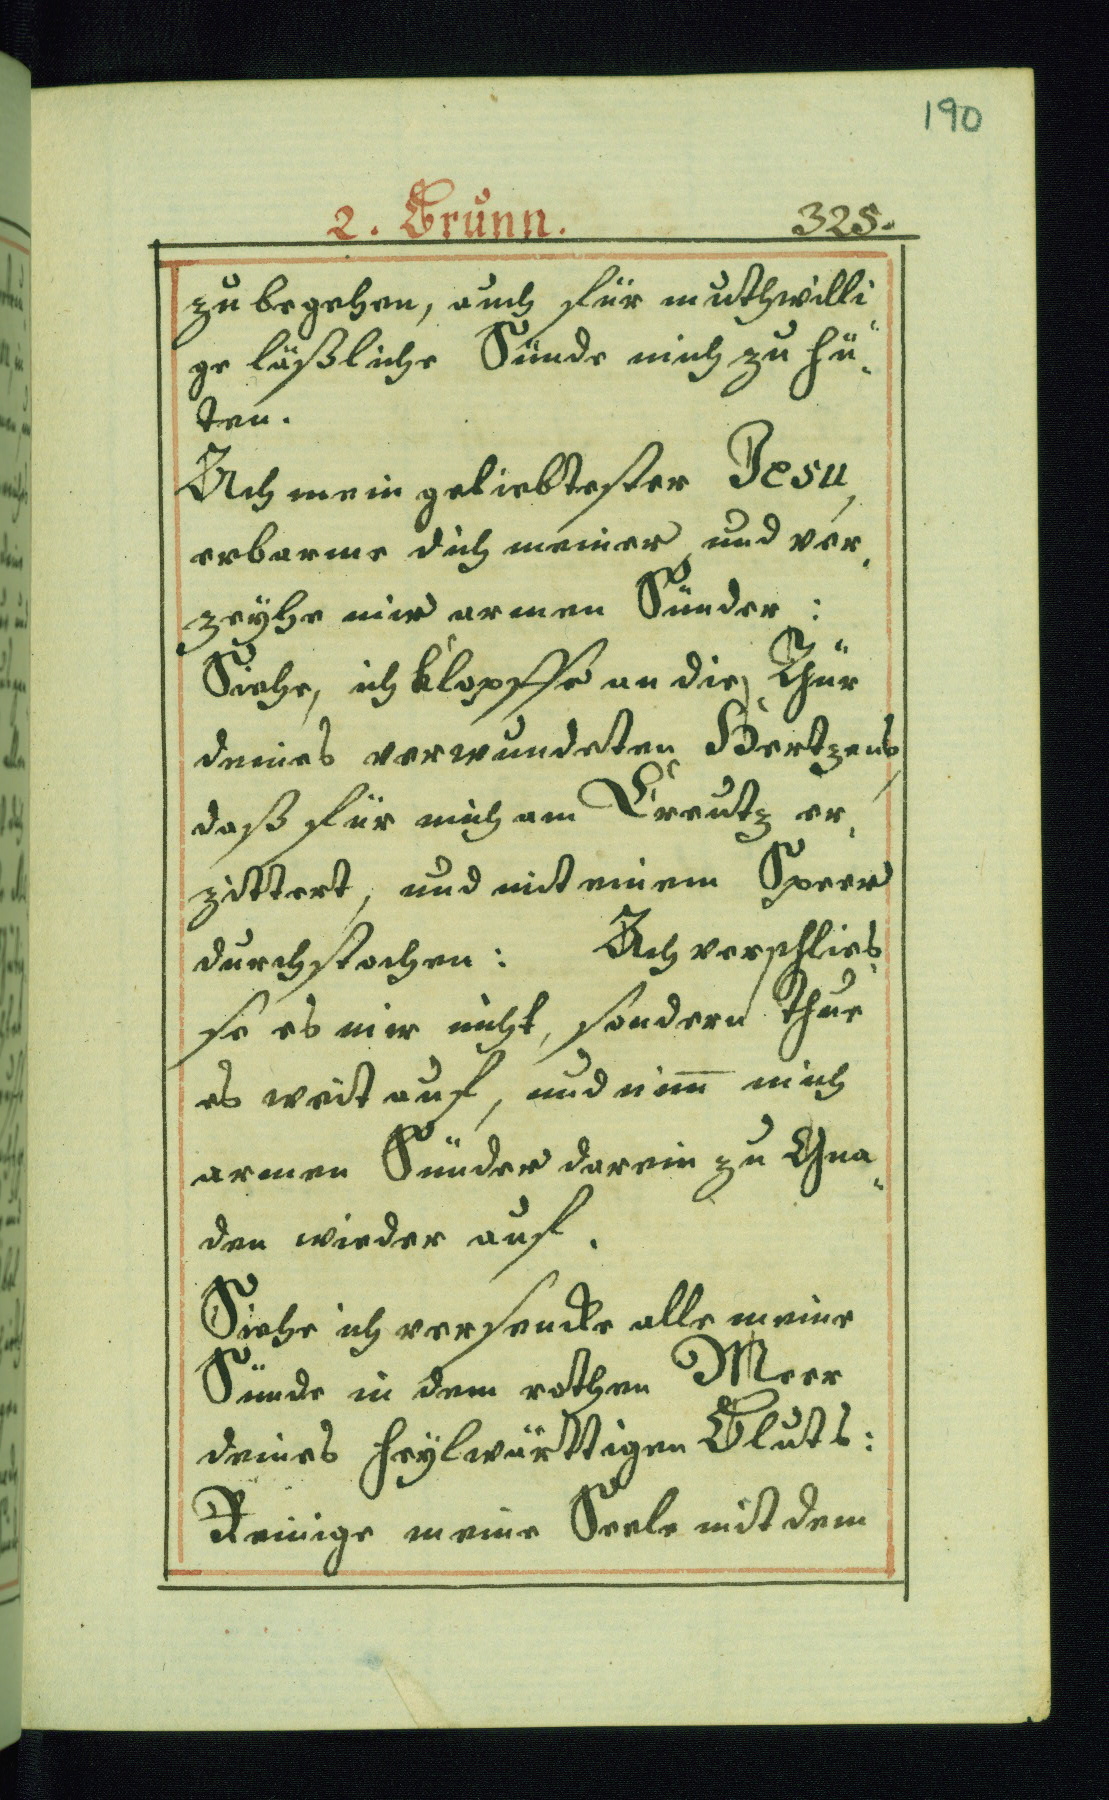 190
2. Brunn. 325.
zu begehen, auch für muthwilli¸
ge läßliche Sünde mich zu hü¸
ten.
Ach mein geliebtester Jesu,
erbarme dich meiner, und ver¸
zeÿhe mir armen Sünder :
Siehe, ich klopffe an die Thür
deines verwundeten Hertzens,
daß für mich am Creutz er¸
zittert, und mit einem Speer
durchstochen : Ach verschlies¸
se es mir nicht, sondern thue
es weit auf, und nim̅ mich
armen Sünder darein zu Gna¸
den wieder auf.
Siehe ich versencke alle meine
Sünde in dem rothen Meer
deines heÿlwürttigen Bluts :
Reinige meine Seele mit dem